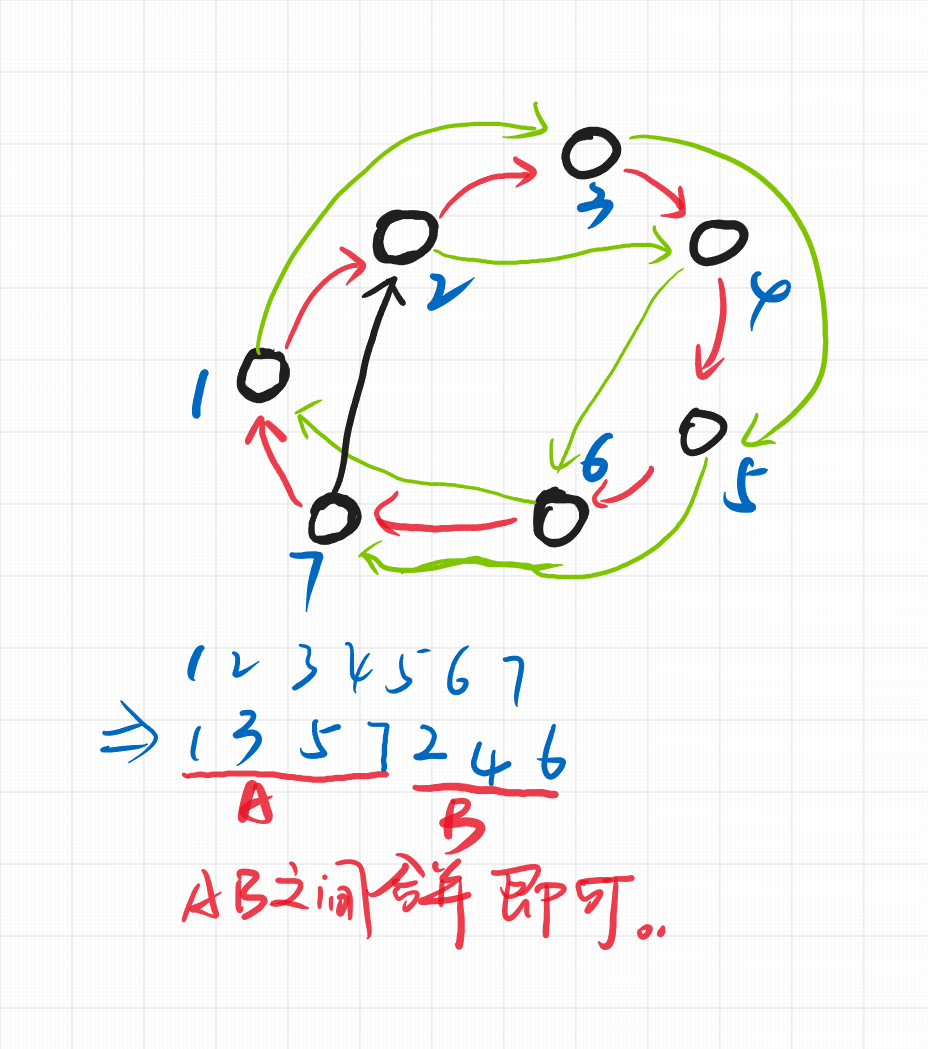 3
2
4
1
6
5
7
1 2 3 4 5 6 7
⇒ 1 3 5 7 2 4 6
A B
AB之间合并即可..